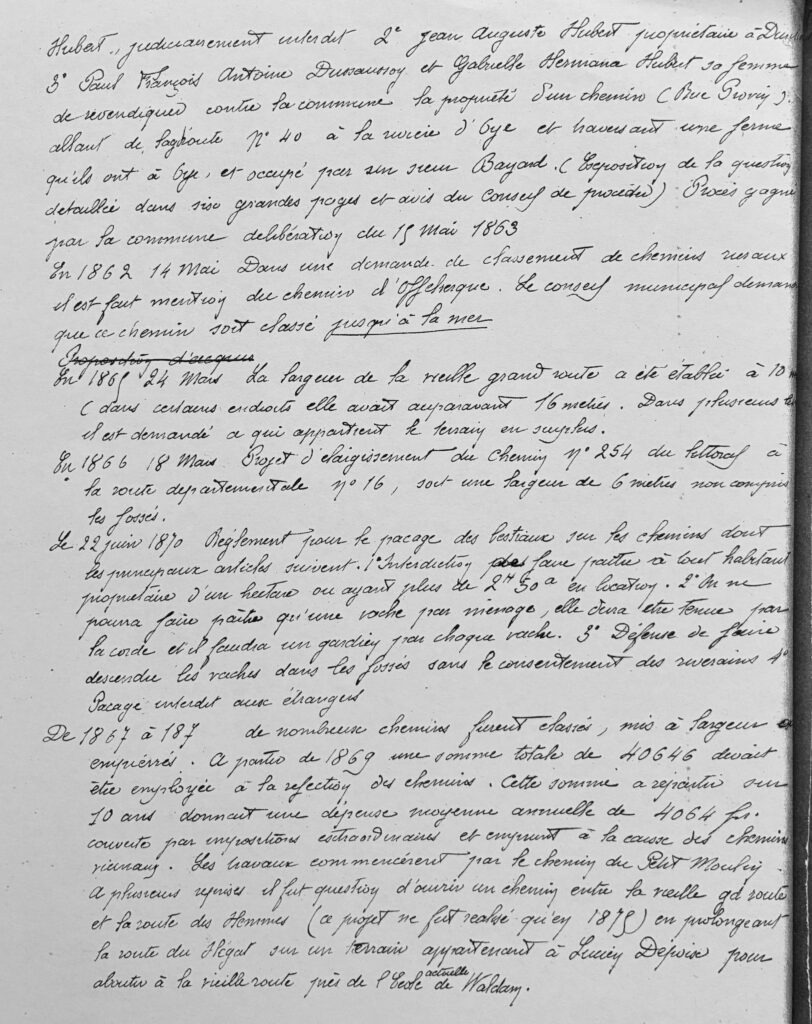 Hubert, judiciairement interdit 2° Jean Auguste Hubert propriétaire à
3° Paul François Antoine Dussaussoy et Gabrielle Hermana Hubert sa femme
de revendiquer contre la commune la propriété d'un chemin (Rue
allant de la route N° 40 à la rivière d'Oye et traversant une ferme
qu'ils ont à Oye, et occupé par un sieur Bayard. (Exposition de la question
détaillée dans six grandes pages et avis du conseil de procéder) Procès gagné
par la commune délibération du 15 Mai 1863
En 1862 14 Mai Dans une demande de classement de chemins ruraux
il est fait mention du chemin d'Offekerque. Le conseil municipal
que ce chemin soit classé jusqu'à la mer
Proposition
En 1865 24 Mars La largeur de la vieille grand route a été établie à 10
(dans certains endroits elle avait auparavant 16 mètres. Dans plusieurs
il est demandé a qui appartient le terrain en surplus.
En 1866 18 Mars Projet d'élargissement du chemin N° 254 du littoral à
la route départementale n° 16, soit une largeur de 6 mètres non compris
les fossés.
Le 22 juin 1870 Règlement pour le pacage des bestiaux sur les chemins dont
les principaux articles suivent. 1° Interdiction de faire paître à tout habitant
propriétaire d'un hectare ou ayant plus de 2H 50a en location. 2° On ne
pourra faire paître qu'une vache par ménage, elle devra être tenue par
la corde et il faudra un gardien par chaque vache. 3° Défense de faire
descendre les vaches dans les fossés sans le consentement des riverains 4°
Pacage interdit aux étrangers
De 1867 à 187 de nombreux chemins furent classés, mis à largeur
empierrés. A partir de 1869 une somme totale de 40646 devait
être employée à la réfection des chemins. Cette somme a répartir sur
10 ans donnait une dépense moyenne annuelle de 4064 frs.
couverte par impositions extraordinaires et emprunt à la caisse des chemins
vicinaux. Les travaux commencèrent par le chemin du Petit Moulin
A plusieurs reprises il fut question d'ouvrir un chemin entre la vieille gd route
et la route des Hemmes (ce projet ne fut réalisé qu'en 1875) en prolongeant
la route du Hégat sur un terrain appartenant à Lucien Depoise pour
aboutir à la vieille route près de l'Ecole actuelle de Waldam.